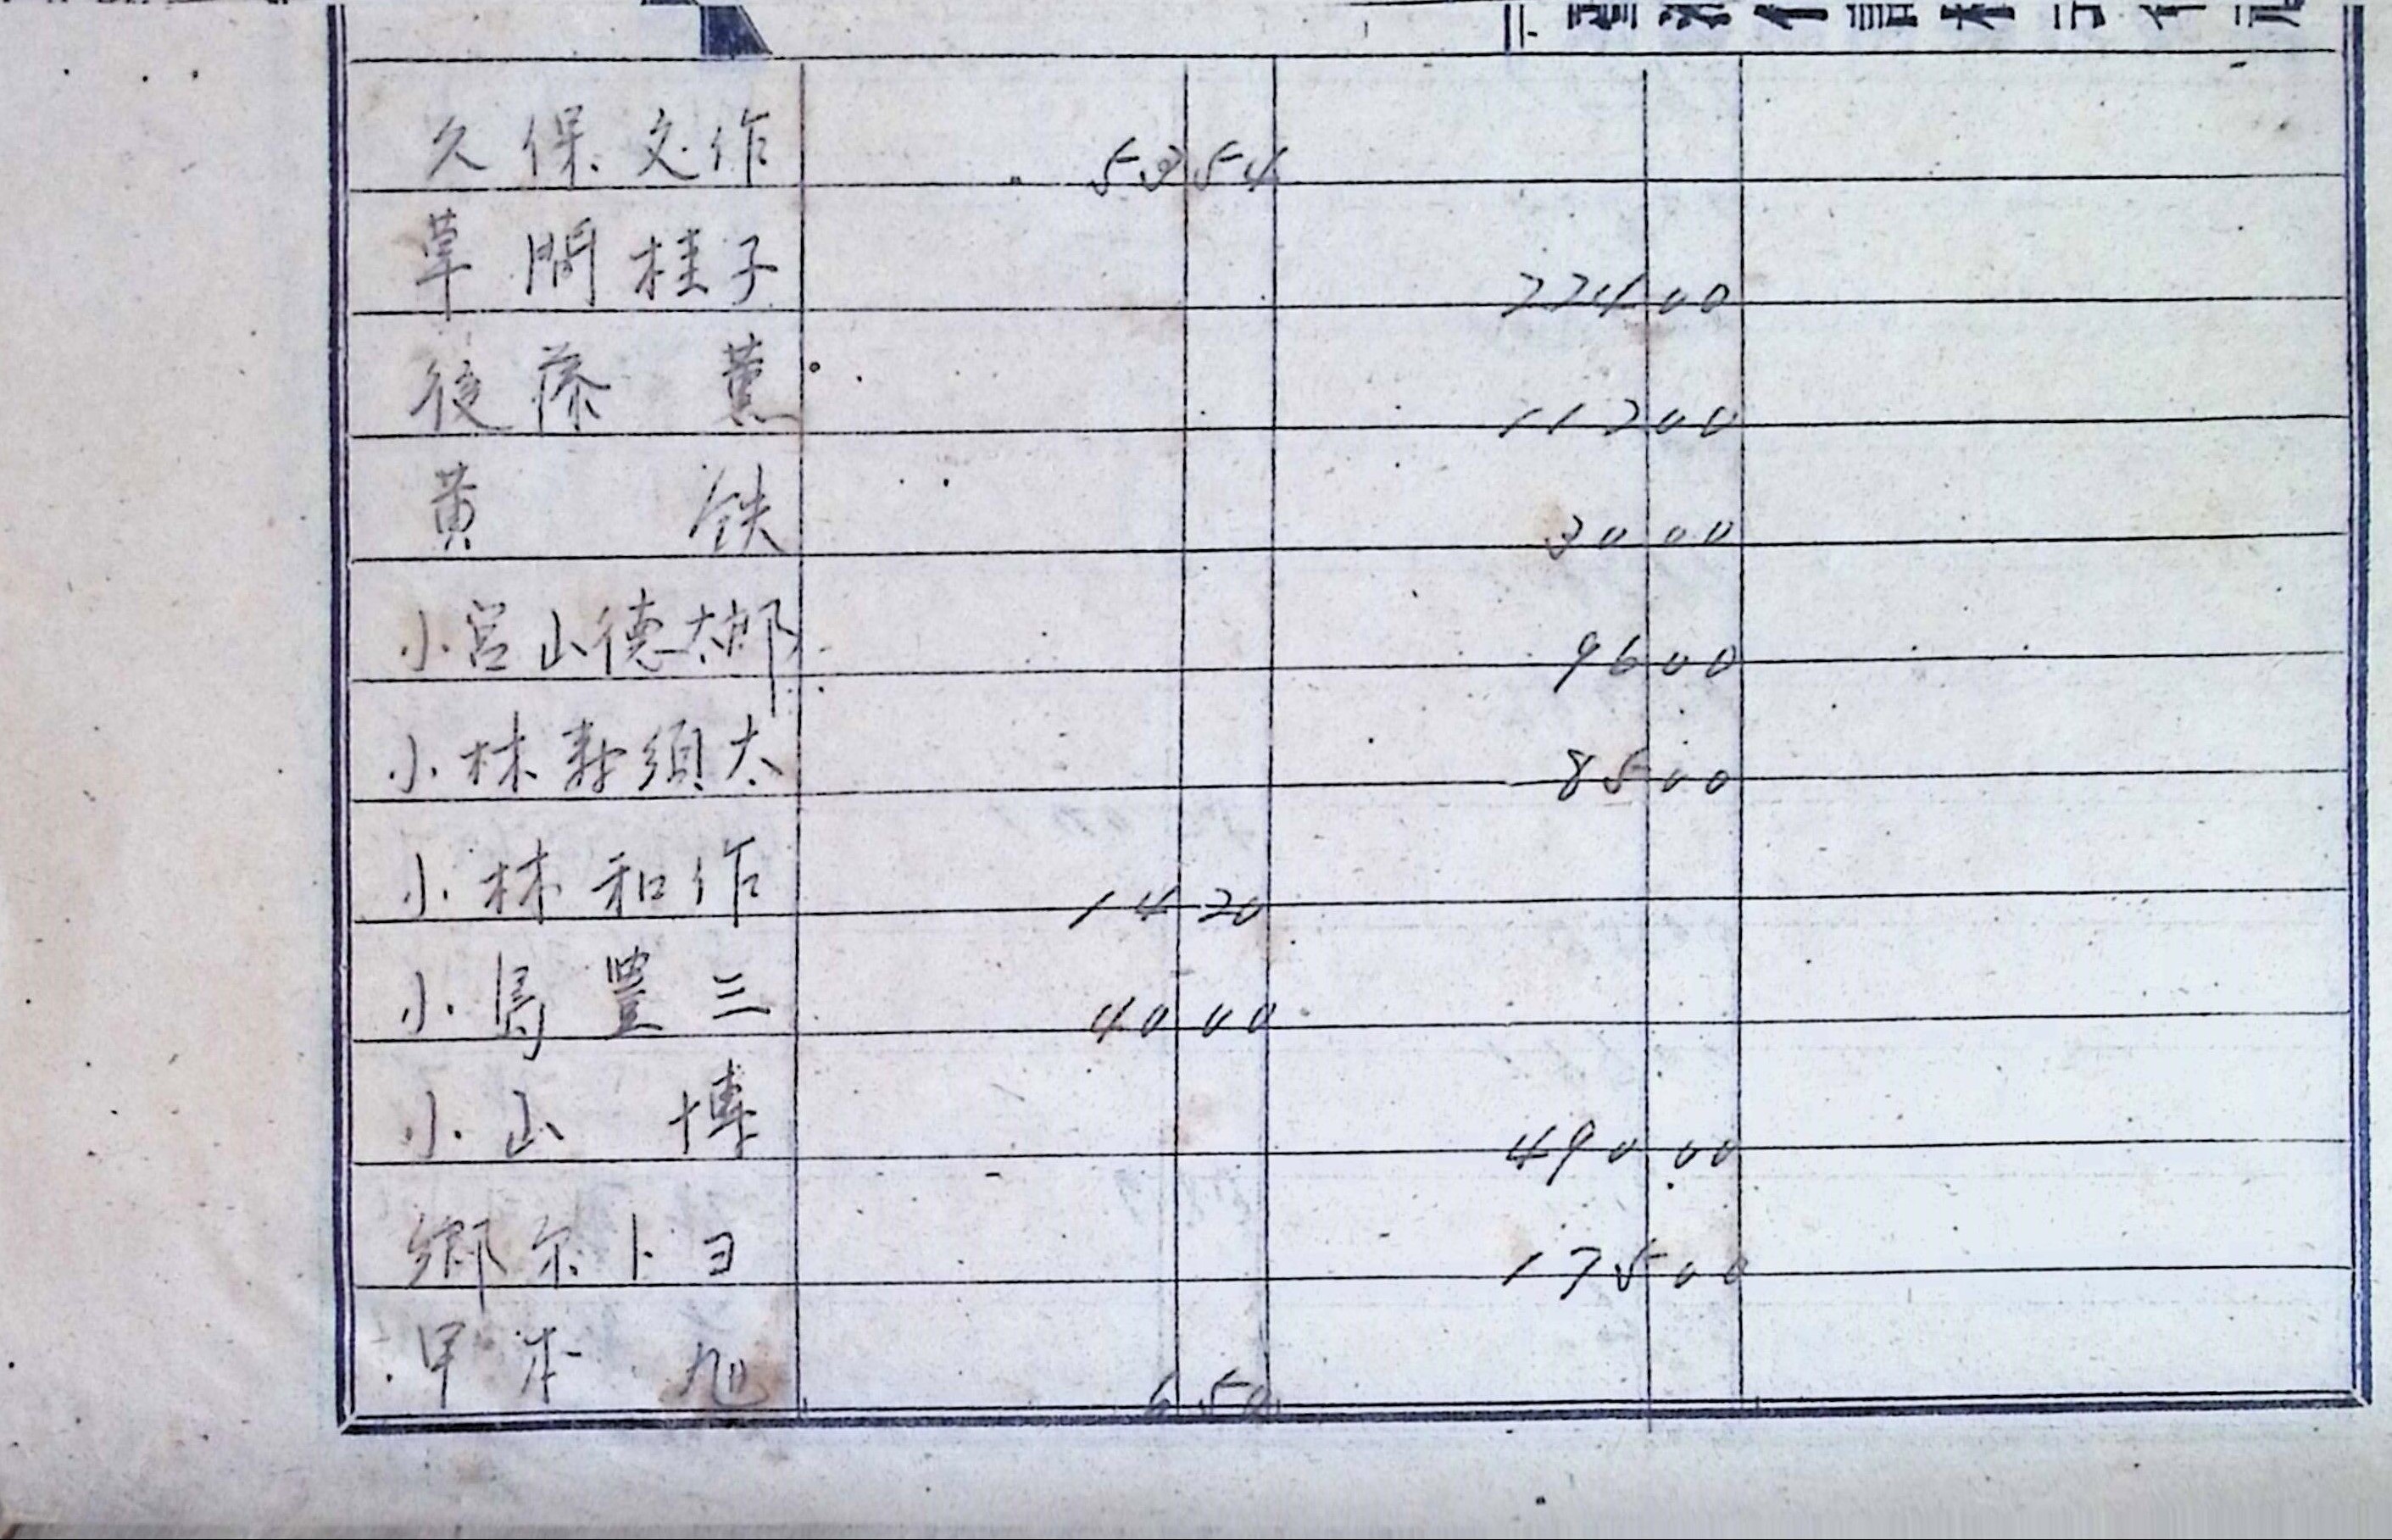 久保文作 53 54
草間桂子 224 00
後藤 薫 112 00
黄 鉄 30 00
小宮山德太郎 96 00
小林寿須太 85 00
小林和作 14 20
小島豊三 40 00
小山 博 490 00
郷尓トヨ 175 00
甲本 旭 6 50